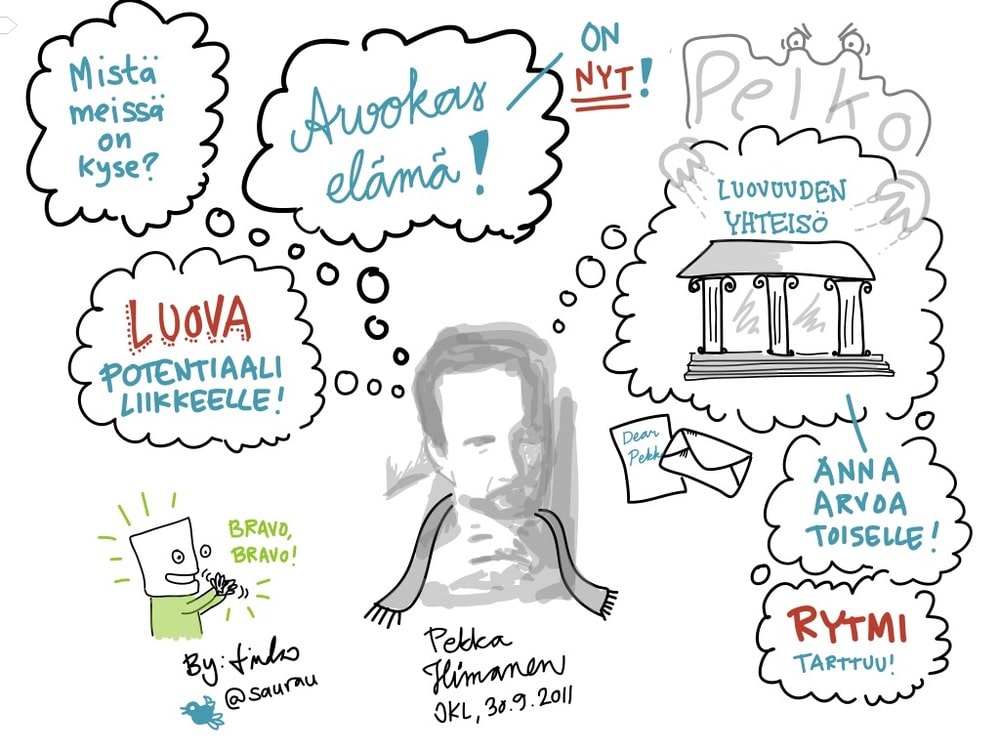 Mistä
meissä
on
kyse?
Arvokas
elämä!
ON
NYT!
Pelko
LUOVUUDEN
YHTEISÖ
LUOVA
POTENTIAALI
LIIKKEELLE!
Dear
Pekk
ANNA
ARVOA
TOISELLE!
RYTMI
TARTTUU!
BRAVO,
BRAVO!
By:
@saurau
Pekka
Himanen
JKL, 30.9.2011